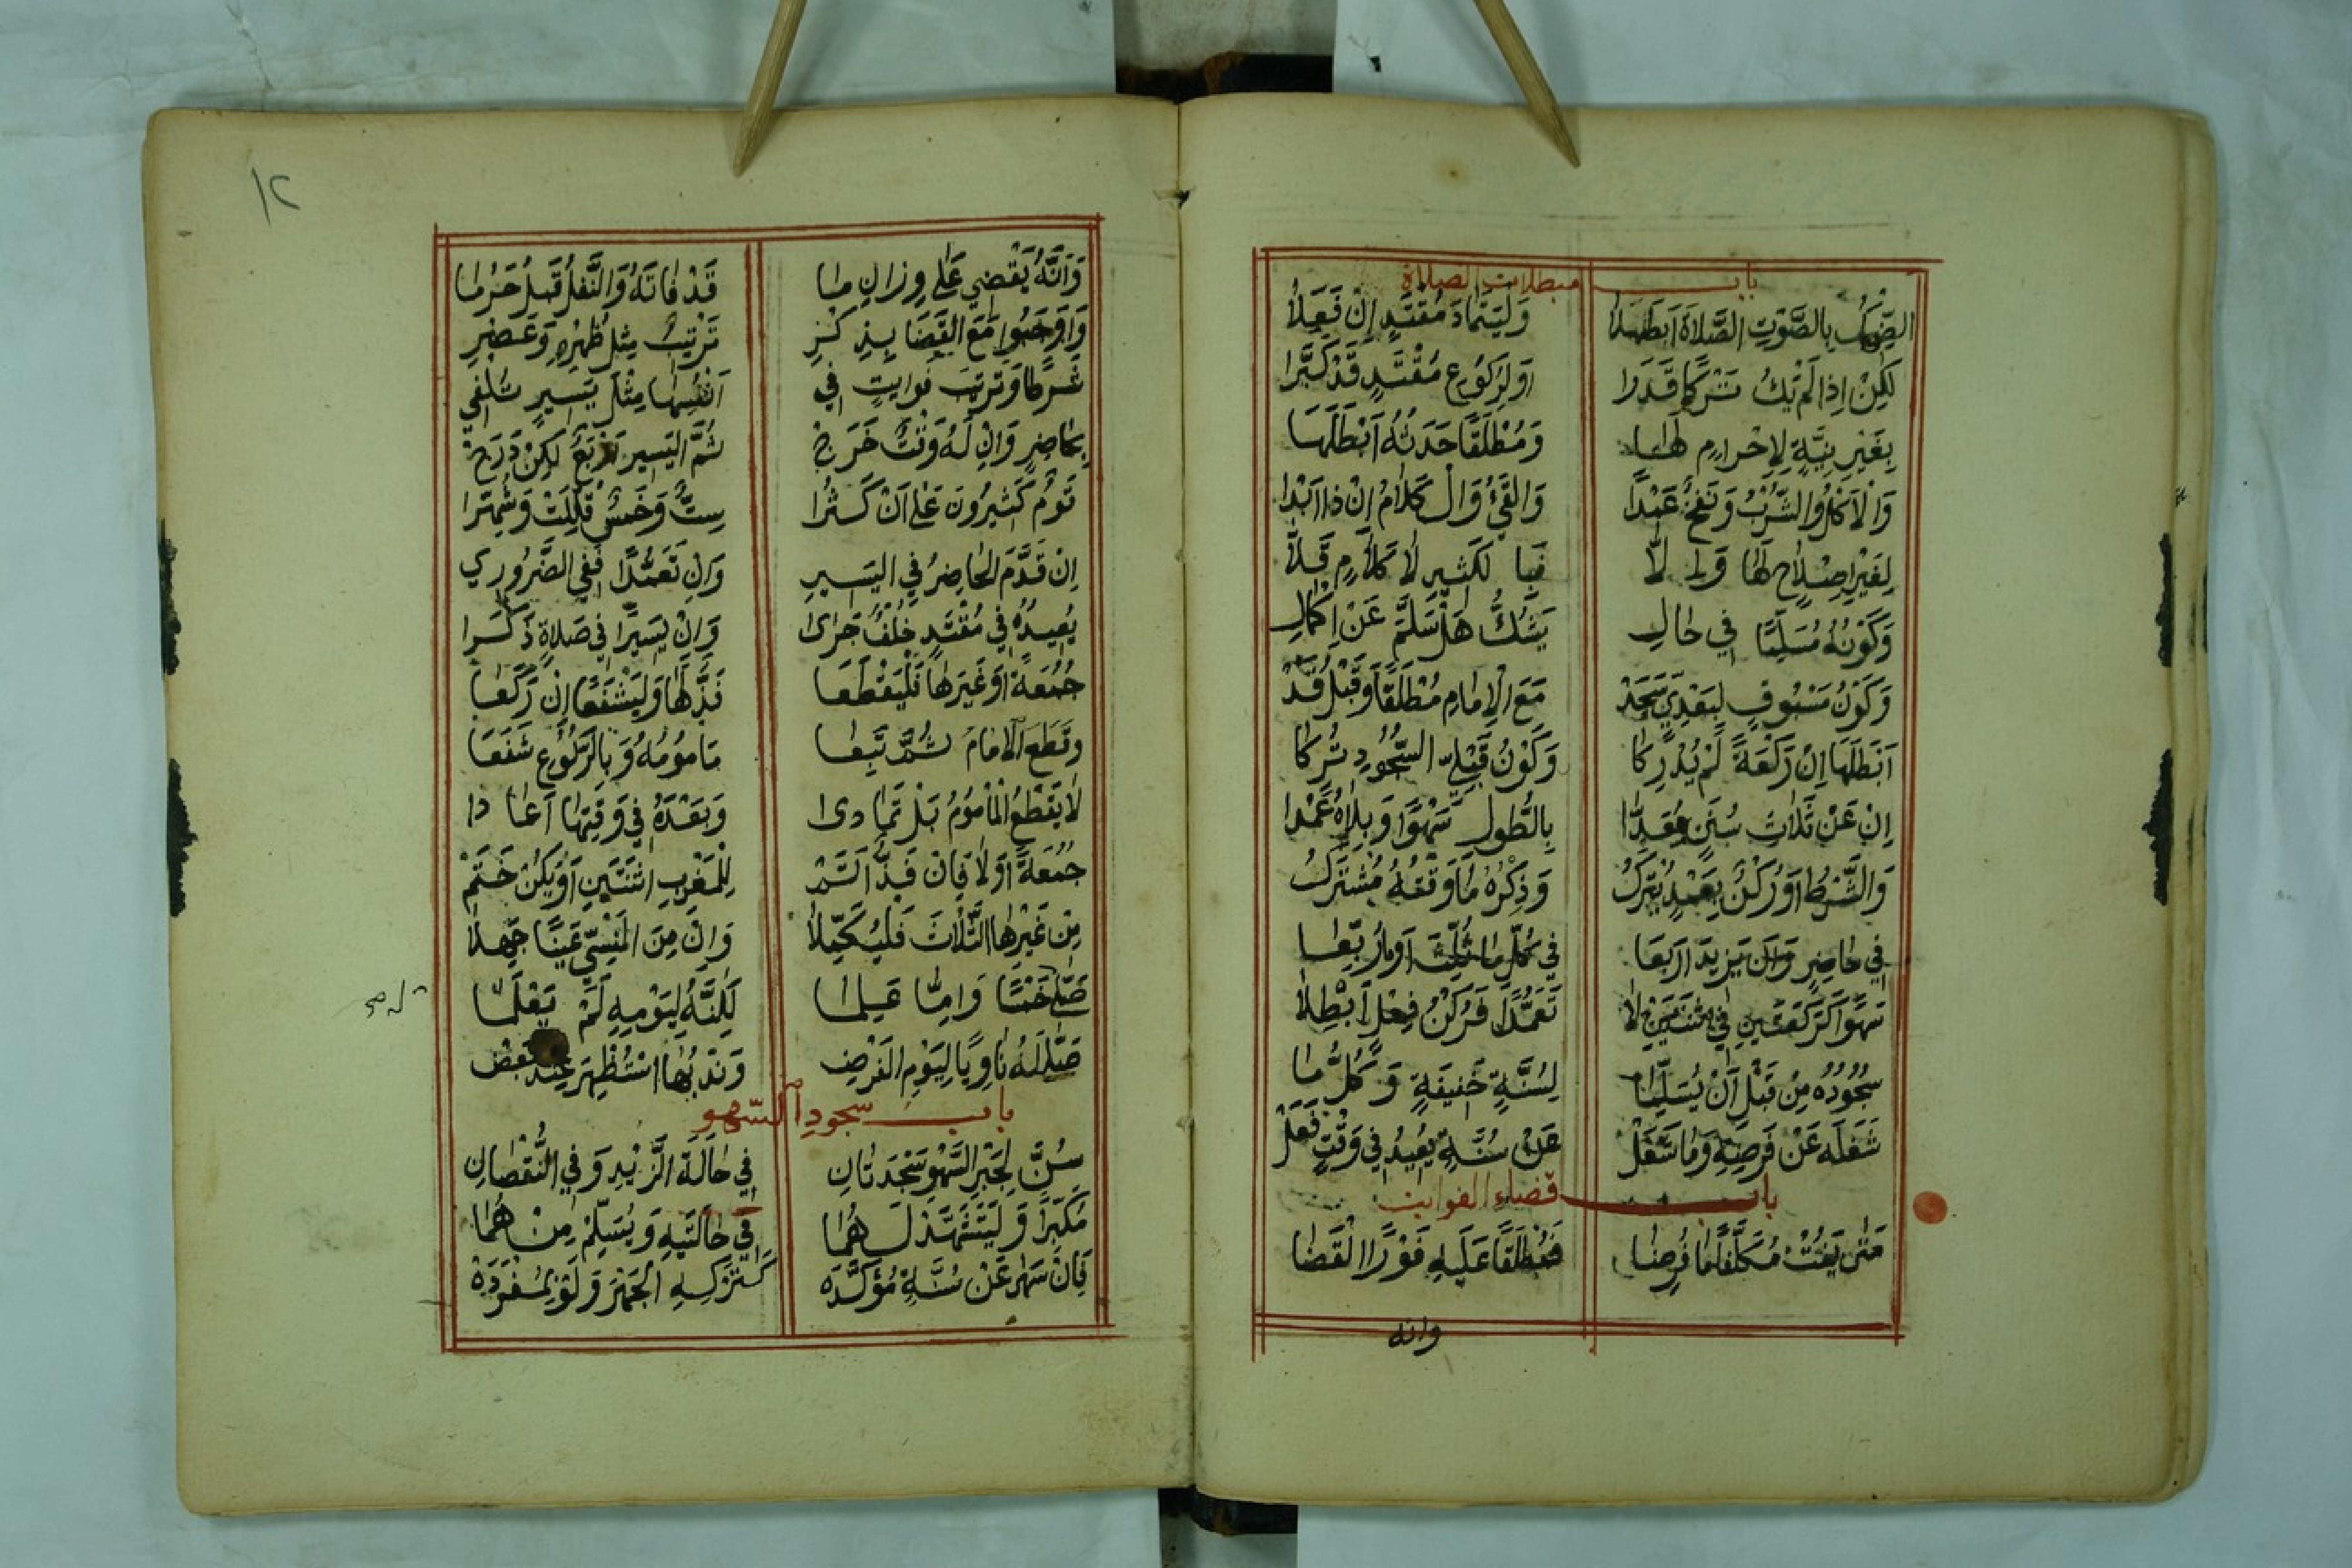 باب مبطلات الصلاة
الضِّحْكُ بِالصَّوْتِ الصَّلاَةَ أَبْطَلاَ وَلْيَتَمَادَ مُقْتَدٍ إِنْ فَعَلاَ
لَكِنْ إِذَا لَمْ يَكُ تَرْكًا قَدَرَا أَوْ لِرُكُوعٍ مُقْتَدٍ قَدْ كَبَّرَا
بِغَيْرِ نِيَّةٍ لِإِحْرَامٍ لَهَا وَمُطْلَقًا حَدَثُهُ أَبْطَلَهَا
وَالْأَكْلُ وَالشُّرْبُ وَنَفْخٌ عَمْدًا وَالْقَيْءُ وَالْكَلاَمُ إِنْ ذَا أَبْدَا
لِغَيْرِ إِصْلاَحٍ لَهَا وَإِلاَّ فَبِالكَثِيرِ لاَ كَلاَمٍ قَلاَّ
وَكَوْنُهُ مُسَلِّمًا فِي حَالِ يَشُكُّ هَلْ سَلَّمَ عَنْ إِكْمَالِ
وَكَوْنُ مَسْبُوقٍ لِبَعْدِيٍّ سَجَدْ مَعَ الْإِمَامِ مُطْلَقًا وَقَبْلُ قَدْ
أَبْطَلَهَا إِنْ رَكْعَةً لَمْ يُدْرِكَا وَكَوْنُ قَبْلِيِّ السُّجُودِ تُرِكَا
إِنْ عَنْ ثَلاَثِ سُنَنٍ فَقَدَّا بِالطُّولِ سَهْوًا وَبِلاَهُ عَمْدَا
وَالشَّرْطُ أَوْ رُكْنٌ بِعَمْدٍ يُتْرَكُ وَذِكْرُهُ مَا وَقْتُهُ مُشْتَرَكُ
فِي حَاضِرٍ وَأَنْ يَزِيدَ أَرْبَعَا فِي كُلِّ مَا ثُلِّثَ أَوْ مَا رُبِّعَا
سَهْوًا كَرَكْعَتَيْنِ فِي اثْنَتَيْنِ لاَ تَعَمُّدًا فَرُكْنُ فِعْلٍ أَبْطِلاَ
سُجُودُهُ مِنْ قَبْلِ أَنْ يُسَلِّمَا لِسُنَّةٍ خَفِيفَةٍ وَكُلُّ مَا
شَغَلَهُ عَنْ فَرْضِهِ وَمَا شَغَلْ عَنْ سُنَّةٍ يُعِيدُ فِي وَقْتٍ فَعَلْ
باب قضاء الفوايت
مَتَى يَفُتْ مُكَلَّفًا مَا فُرِضَا فَمُطْلَقًا عَلَيْهِ فَوْرًا الْقَضَا
وانه
١٢
وَأَنَّهُ يَقْضِي عَلَى وِزَانِ مَا قَدْ فَاتَهُ وَالنَّفْلُ قَبْلُ حَرُمَا
وَأَوْجَبُوا مَعَ الْقَضَا بِذِكْرِ تَرْتِيبُ مِثْلِ ظُهْرِهِ وَعَصْرِ
شَرْطًا وَتَرْتِيبَ فَوَايِتٍ فِي أَنْفُسِهَا مِثْلَ يَسِيرٍ تُلْفِي
بِحَاضِرٍ وَإِنْ لَهُ وَقْتٌ خَرَجْ ثُمَّ الْيَسِيرُ أَرْبَعٌ لَكِنْ دَرَجْ
قَوْمٌ كَثِيرُونَ عَلَى أَنْ كَثُرَا سِتٌّ وَخَمْسٌ قُلِّلَتْ وَشُهِرَا
إِنْ قَدَّمَ الْحَاضِرَ فِي الْيَسِيرِ وَإِنْ تَعَمُّدًا فَفِي الضَّرُورِي
يُعِيدُهُ فِي مُقْتَدٍ خُلْفٌ جَرَى وَإِنْ يَسِيرًا فِي صَلاَةٍ ذَكَرَا
جُمُعَةً أَوْ غَيْرَهَا فَلْيَقْطَعَا فَذٌّ لَهَا وَلْيَشْفَعًا إِنْ رَكَعَا
وَقَطَعَ الْإِمَامُ ثُمَّ تَبِعَا مَأْمُومُهُ وَبِالرُّكُوعِ شَفَعَا
لاَ يَقْطَعُ الْمَأْمُومُ بَلْ تَمَادَى وَبَعْدَهُ فِي وَقْتِهَا أَعَادَا
جُمُعَةً أَوْ لاَ فَإِنْ فَذٌّ أَتَمّ لِلْمَغْرِبِ اثْنَتَيْنِ أَوْ يَكُنْ خَتَمْ
مِنْ غَيْرِهَا الثَّلاَثَ فَلْيُكَمِّلاَ وَإِنْ مِنَ الْمَنْسِيِّ عَيْنًا جَهِلاَ
صَلَّى خَمْسًا وَإِمَّا عَلِمَا لَكِنَّهُ لِيَوْمِهِ لَمْ يَعْلَمَا
صَلَّى لَهُ نَاوِيًا لِيَوْمِ الْفَرْضِ وَنَدْبُهَا اسْتُظْهِرَ عِنْدَ بَعْضِ
باب سجود السهو
سُنَّ لِجَبْرِ السَّهْوِ سَجْدَتَانِ فِي حَالَةِ الزَّيْدِ وَفِي النُّقْصَانِ
مُكَبِّرًا وَلْيَتَشَهَّدْ لَهُمَا فِي حَالَتَيْهِ وَيُسَلِّمْ مِنْهُمَا
فَإِنْ سَهَى عَنْ سُنَّةٍ مُؤَكَّدَه كَتَرْكِهِ الْجَهْرَ وَلَوْ بِمُفْرَدَهْ